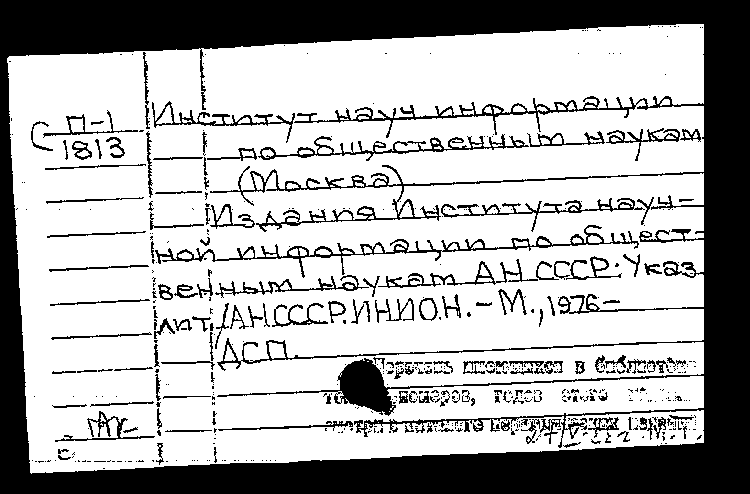 С П-1
1813
Институт науч информации
по общественным наукам
(Москва)
Издания Института науч-
ной информации по общест-
венным наукам АН СССР: Указ
лит. /АН СССР. ИНИОН. – М., 1976–
ДСП.
Перечень имеющихся в библиотеке
номеров, годов этого
смотри в каталоге периодических изданий